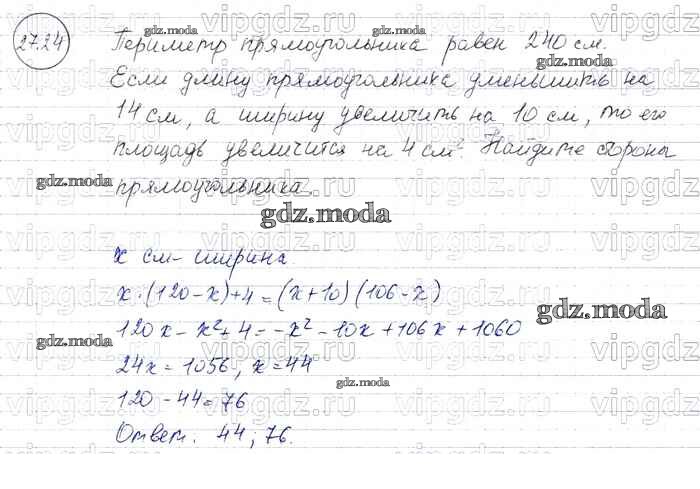 27.24 Периметр прямоугольника равен 240 см.
Если длину прямоугольника уменьшить на
14 см, а ширину увеличить на 10 см, то его
площадь увеличится на 4 см². Найдите стороны
прямоугольника.
gdz.moda
x см - ширина
x·(120-x)+4=(x+10)(106-x)
120x-x²+4=-x²-10x+106x+1060
24x=1056, x=44
120-44=76
Ответ. 44; 76.
gdz.moda
gdz.moda
gdz.moda
gdz.moda
gdz.moda
gdz.moda
vipgdz